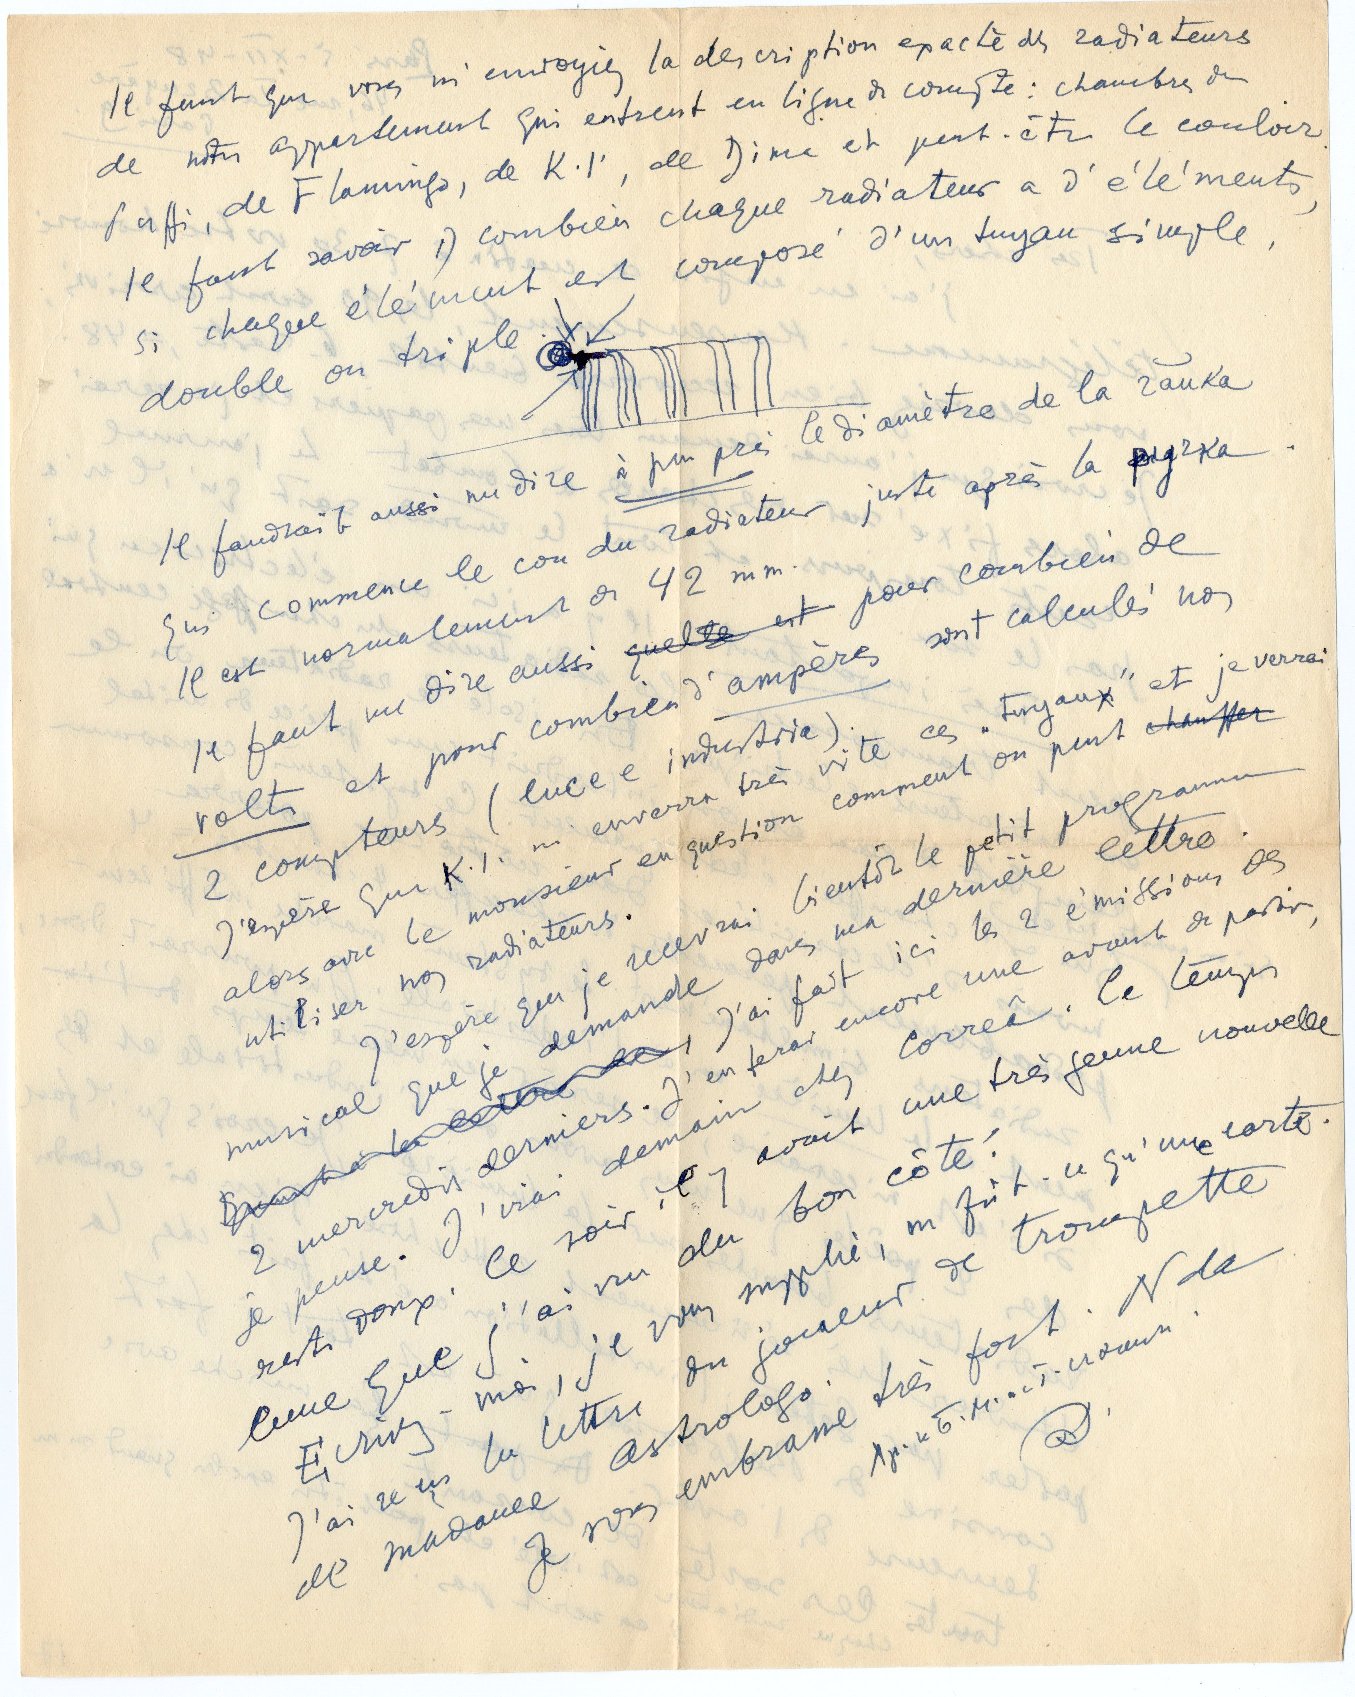 Il faut que vous m'envoyiez la description exacte des radiateurs
de notre appartement qui entrent en ligne de compte: chambres de
Puffi, de Flamingo, de K.I., de Dima et peut-être le couloir.
Il faut savoir 1) combien chaque radiateur a d'éléments,
si chaque élément est composé d'un tuyau simple,
double ou triple.
Il faudrait aussi me dire à peu près le diamètre de la гайка
qui commence le cou du radiateur juste après la ручка.
Il est normalement de 42 mm.
Il faut me dire aussi quelle est pour combien de
volts et pour combien d'ampères sont calculés nos
2 compteurs (luce e industria).
J'espère que K.I. m'enverra très vite ces "tuyaux" et je verrai
alors avec le monsieur en question comment on peut chauffer
utiliser nos radiateurs.
J'espère que je recevrai bientôt le petit programme
musical que je demande dans ma dernière lettre.
Quant à la lettre de, J'ai fait ici les 2 émissions des
2 mercredis derniers. J'en ferai encore une avant de partir,
je pense. J'irai demain chez Corrêa. Le temps
reste doux. Ce soir il y avait une très jeune nouvelle
lune que j'ai vu du bon côté!
Ecrivez-moi, je vous supplie, ne fût-ce qu'une carte.
J'ai reçu la lettre du joueur de trompette
de madame Astrologo.
Je vous embrasse très fort.